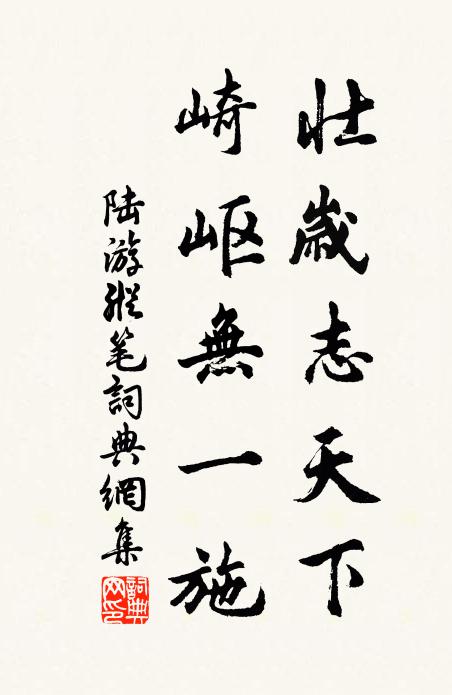 壯歲志天下
崎岖無一施
陆游縱笔詞典網集
詞典網印